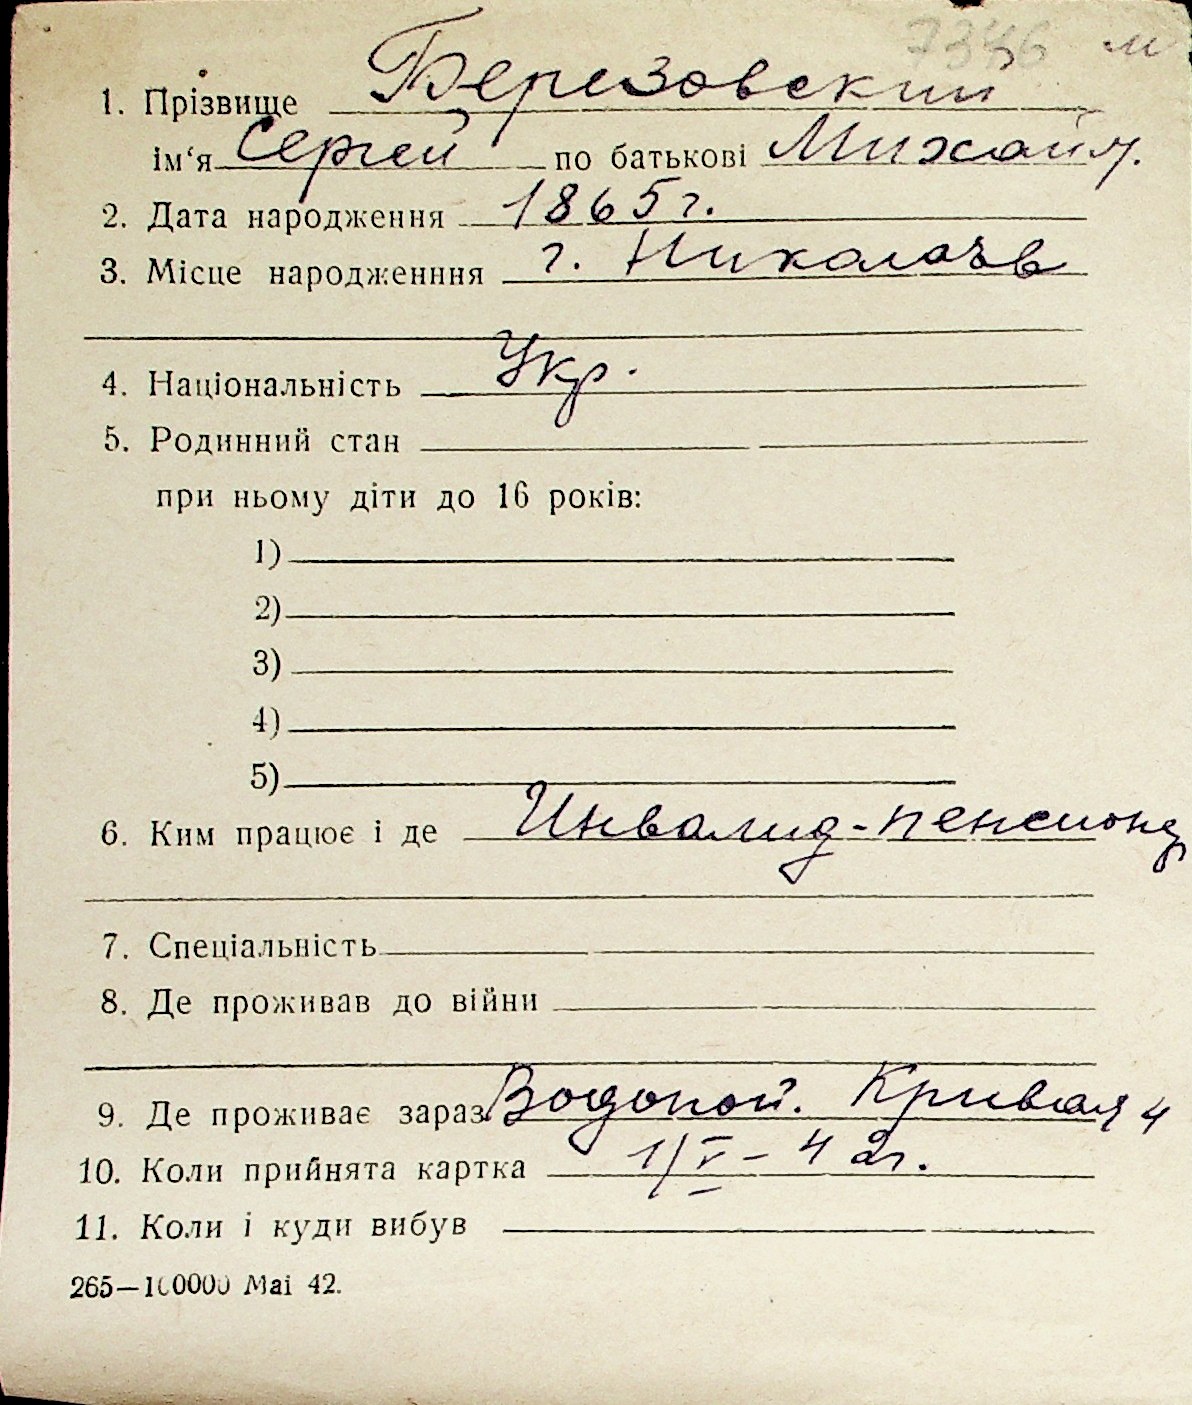 7346 м
1. Прізвище Березовский
ім‘я Сергей по батькові Михайл.
2. Дата народження 1865 г.
3. Місце народженння г. Николаев
4. Національність Укр.
5. Родинний стан
при ньому діти до 16 років:
1)
2)
3)
4)
5)
6. Ким працює і де Инвалид-пенсионер
7. Спеціальність
8. Де проживав до війни
9. Де проживає зараз Водопой. Кривая 4
10. Коли прийнята картка 1/V – 42 г.
11. Коли і куди вибув
265—100000 Mai 42.